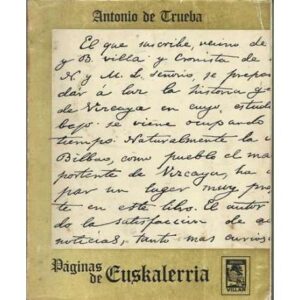 Antonio de Trueba
El que suscribe, vecino de
y B. villa y Cronista de
N. y M. L. Señorío, se prepa
dar á luz la historia g
de Vizcaya en cuyo estud
bajo se viene ocupando
tiempo. Naturalmente la
Bilbao, como pueblo el ma
portente de Vizcaya, ha
par un lugar muy pro
te en este libro. El autor
do la satisfaccion de a
noticias, tanto mas curios
Páginas de Euskalerria
VILLAR